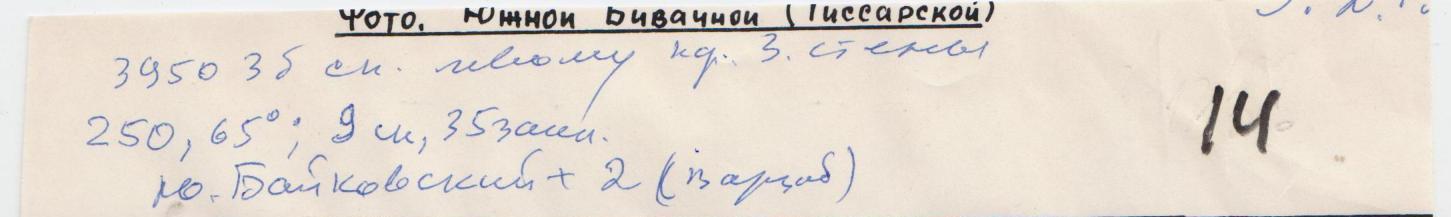 Фото. Южной Бивачной (Гиссарской)
3950 3б ск. левому кр. З. стены
250, 65°; 9 ск, 35закл.
Ю. Байковский + 2 (Варзоб)
14